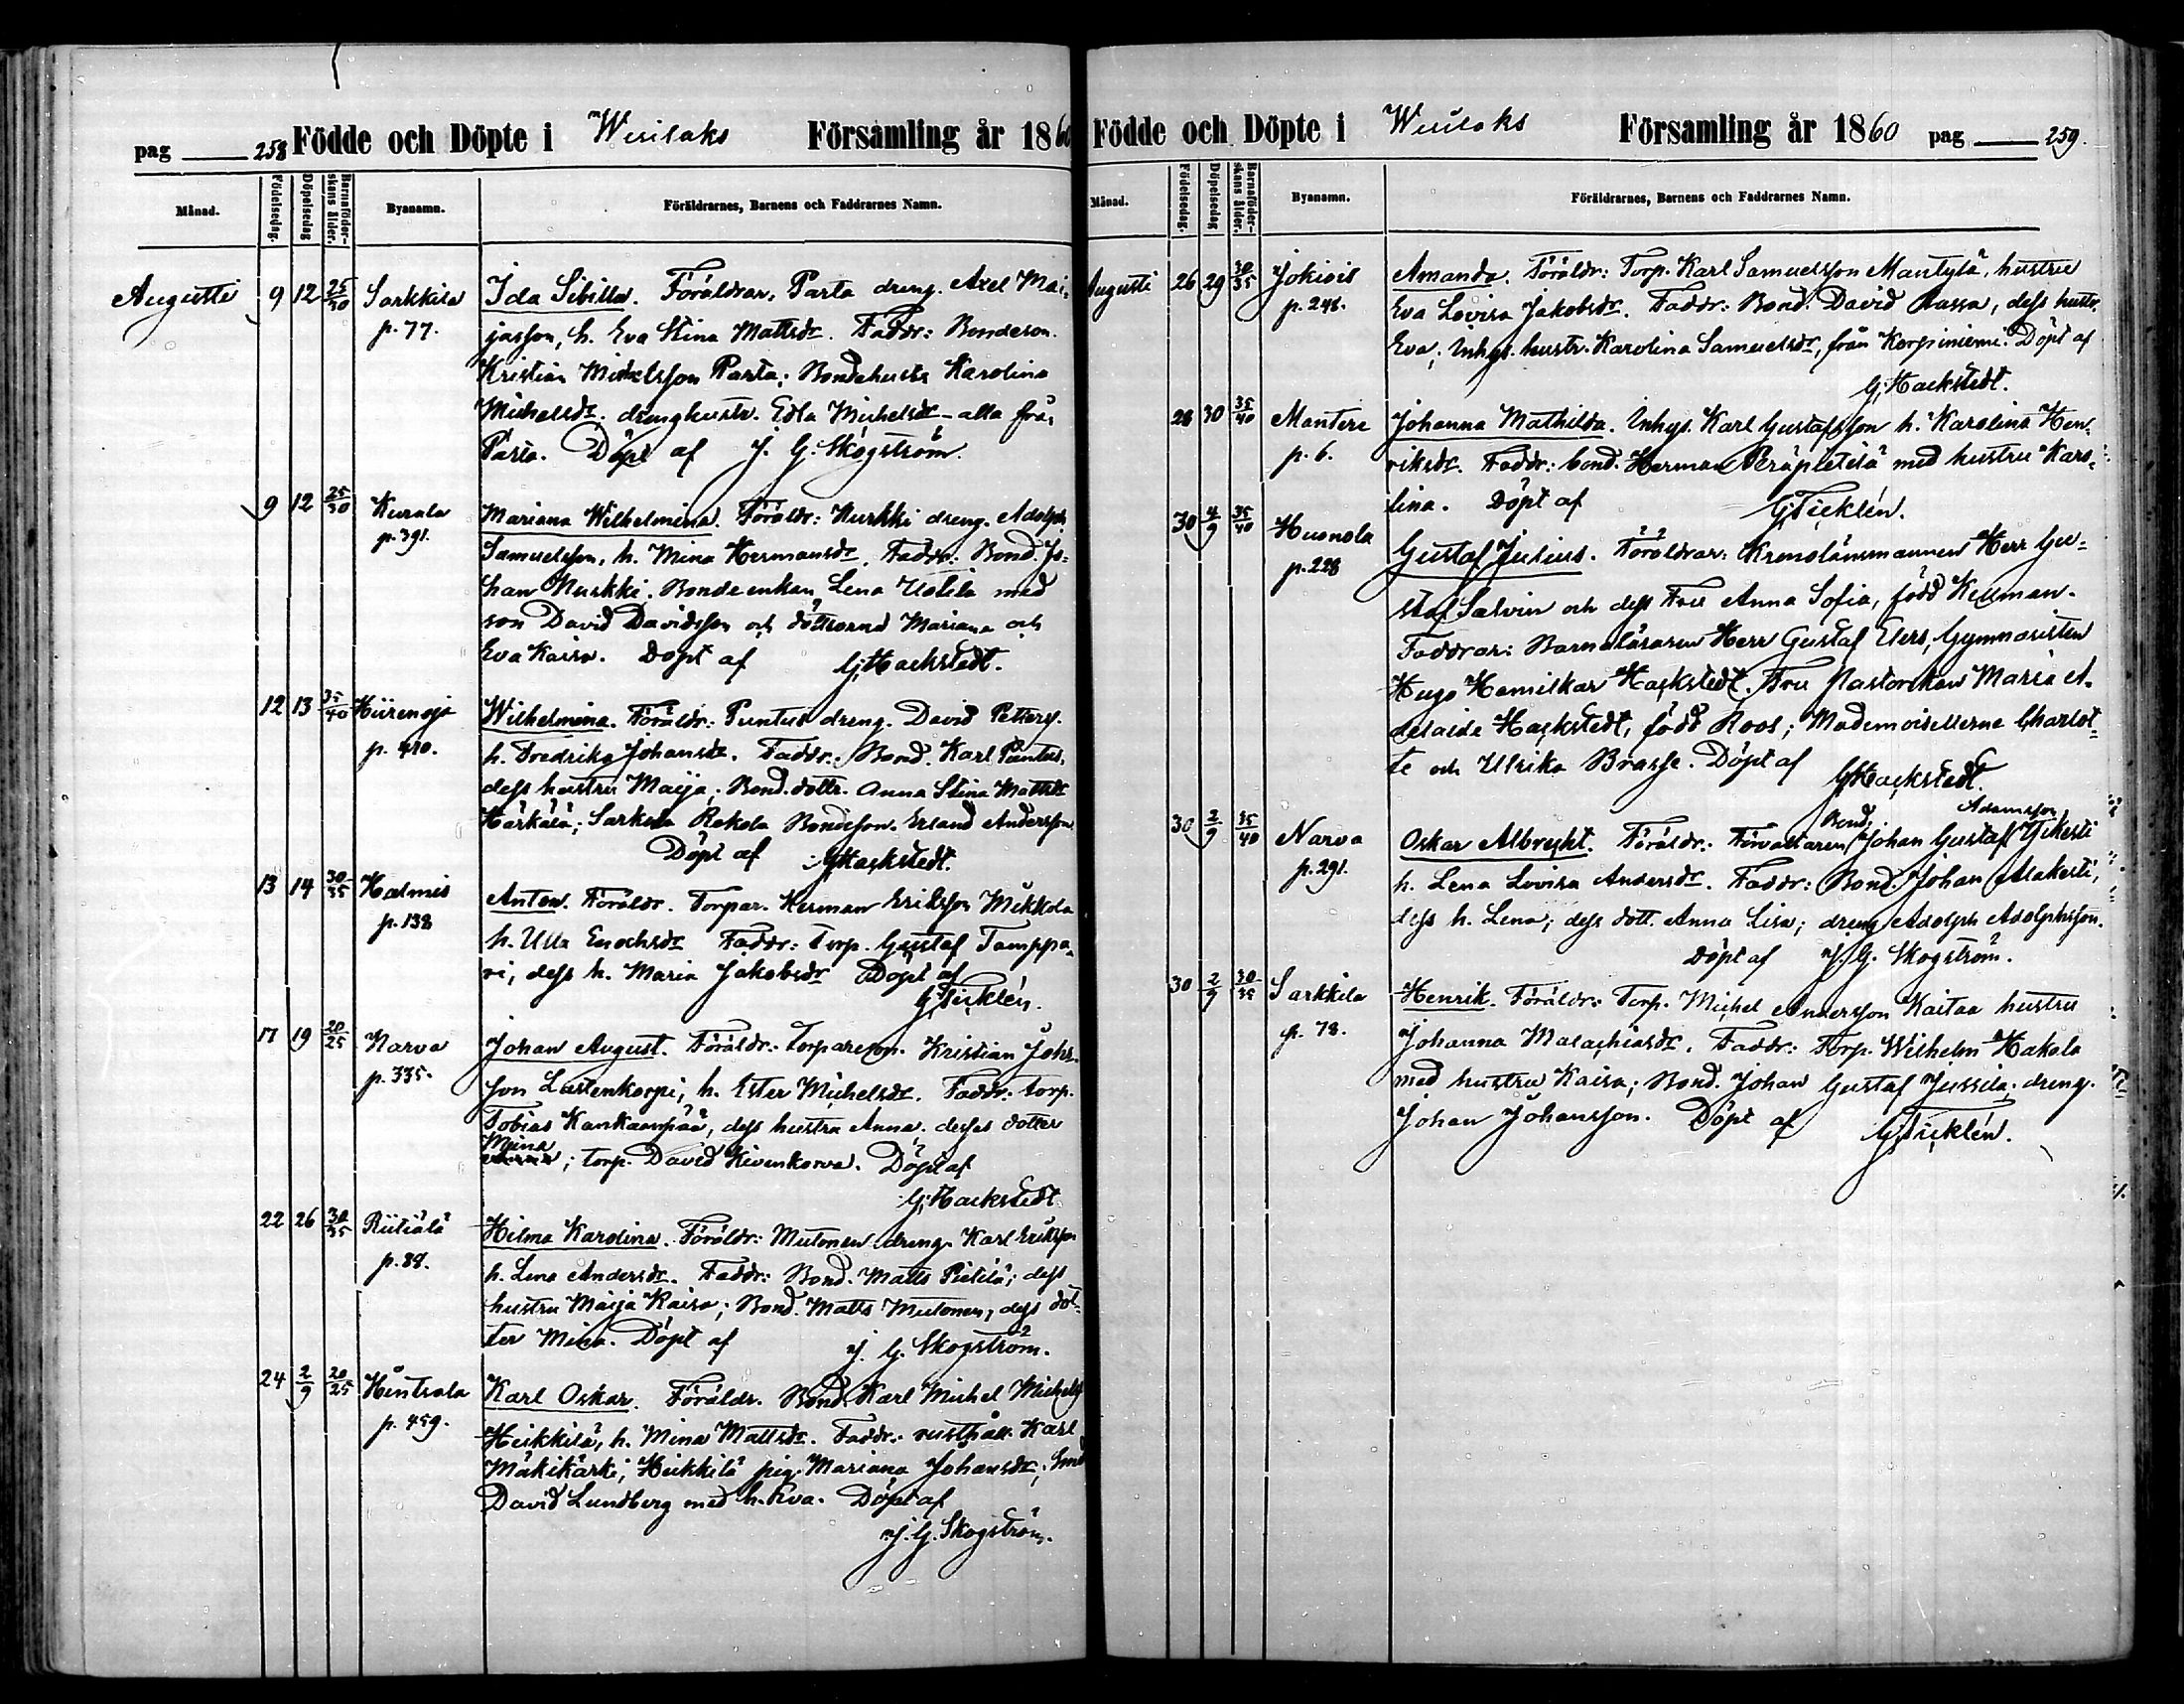 pag 258 Födde och Döpte i Wesilaks Församling år 1860
Månad. Födelsedag. Döpelsedag Barnaföderskans ålder. Byanamn. Föräldrarnes, Barnens och Faddrarnes Namn.
Augusti 9 12 25/30 Sarkkila Ida Sibilla. Föräldrar, Parta dreng. Axel Mai-
p. 77. jasson, h. Eva Stina Mattsdr. Faddr: Bondeson.
Kristian Michelsson Parta; Bondehustr Karolina
Michelsdr. drenghustr. Edla Michelsdr - alla frå,
Parta. Döpt af J. G. Skogström.
9 12 25/30 Kurala Mariana Wilhelmina. Föräldr: Kurkki dreng. Adolph
p. 391. Samuelsson, h. Mina Hermansdr. Faddr: Bond. Jo-
han Kurkki. Bondeenkan Lena Uotila med
son David Davidsson och döttrarna Mariana och
Eva Kaisa. Döpt af G. Hackstedt.
12 13 35/40 Hiirenoja Wilhelmina. Föräldr: Puntus dreng. David Petters.
p. 410. h. Fredrika Johansdr. Faddr: Bond. Karl Puntus,
dess hustru Maija; Bond. dottr. Anna Stina Mattsdr
Härkälä; Sarkola Rekola Bondeson. Erland Andersson
Döpt af G. Hackstedt.
13 14 30/35 Halmis Anton. Föräldr. Torpar. Herman Eriksson Mikkola
p. 138 h. Ulla Enochsdr Faddr: Torp. Gustaf Tamppa-
ri, dess h. Maria Jakobsdr Döpt af
G. Ticklén.
17 19 20/25 Narva Johan August. Föräldr: Torpareson. Kristian Johs-
p. 335. son Lastenkorpi; h. Ester Michelsdr. Faddr: torp.
Tobias Kankaanpää, dess hustru Anna. desses dotter
Mina; torp. David Kivenkorva. Döpt af
G. Hackstedt
22 26 30/35 Riitiälä Hilma Karolina. Föräldr: Mutonen dreng. Karl Eriksson
p. 88. h. Lena Andersdr. Faddr: Bond. Matts Pietilä; dess
hustru Maija Kaisa; Bond. Matts Mutonen, dess dot-
ter Mina. Döpt af J. G. Skogström.
24 2/9 20/25 Hintsala Karl Oskar. Föräldr. Bond. Karl Michel Michels
p. 459. Heikkilä, h. Mina Mattsdr. Faddr: rusthåll. Karl
Mäkikärki; Heikkilä pig. Mariana Johansdr; Smed
David Lundberg med h. Eva. Döpt af
J. G. Skogström.
Födde och Döpte i Wesilaks Församling år 1860 pag 259.
Månad. Födelsedag. Döpelsedag Barnaföderskans ålder. Byanamn. Föräldrarnes, Barnens och Faddrarnes Namn.
Augusti 26 29 30/35 Jokiois Amanda. Föräldr: Torp. Karl Samuelsson Mantylä, hustru
p. 248. Eva Lovisa Jakobsdr. Faddr: Bond. David Rassa, dess hustr.
Eva; Inhys. hustr. Karolina Samuelsdr, från Korpiniemi. Döpt af
G. Hackstedt.
28 30 35/40 Mantere Johanna Mathilda. Inhys. Karl Gustafsson h. Karolina Hen-
p. 6. riksdr. Faddr: bond. Herman Peräpietilä med hustru Karo-
lina. Döpt af G. Ticklén.
30 4/9 35/40 Huonola Gustaf Julius. Föräldrar: Kronolänsmannen Herr Gu-
p. 228 staf Salvin och dess Fru Anna Sofia, född Kellman.
Faddrar: Barnaläraren Herr Gustaf Elers, Gymnasisten
Hugo Hamilkar Hackstedt. Fru Pastorskan Maria A-
delaide Hackstedt, född Roos; Mademoisellerne Charlot-
te och Ulrika Brasse. Döpt af G. Hackstedt.
Bond. Adamsson
30 2/9 35/40 Narva Oskar Albrecht. Föräldr: Förvaltaren Johan Gustaf Ylikesti
p. 291. h. Lena Lovisa Andersdr. Faddr: Bond. Johan Alakesti;
dess h. Lena; dess dott. Anna Lisa; dreng Adolph Adolphsson.
Döpt af J. G. Skogström.
30 2/9 30/35 Sarkkila Henrik. Föräldr: Torp. Michel Andersson Kaitaa hustru
p. 78. Johanna Malachiasdr. Faddr: Torp. Wilhelm Hakala
med hustru Kaisa; Bond. Johan Gustaf Jussila; dreng.
Johan Johansson. Döpt af G. Ticklén.